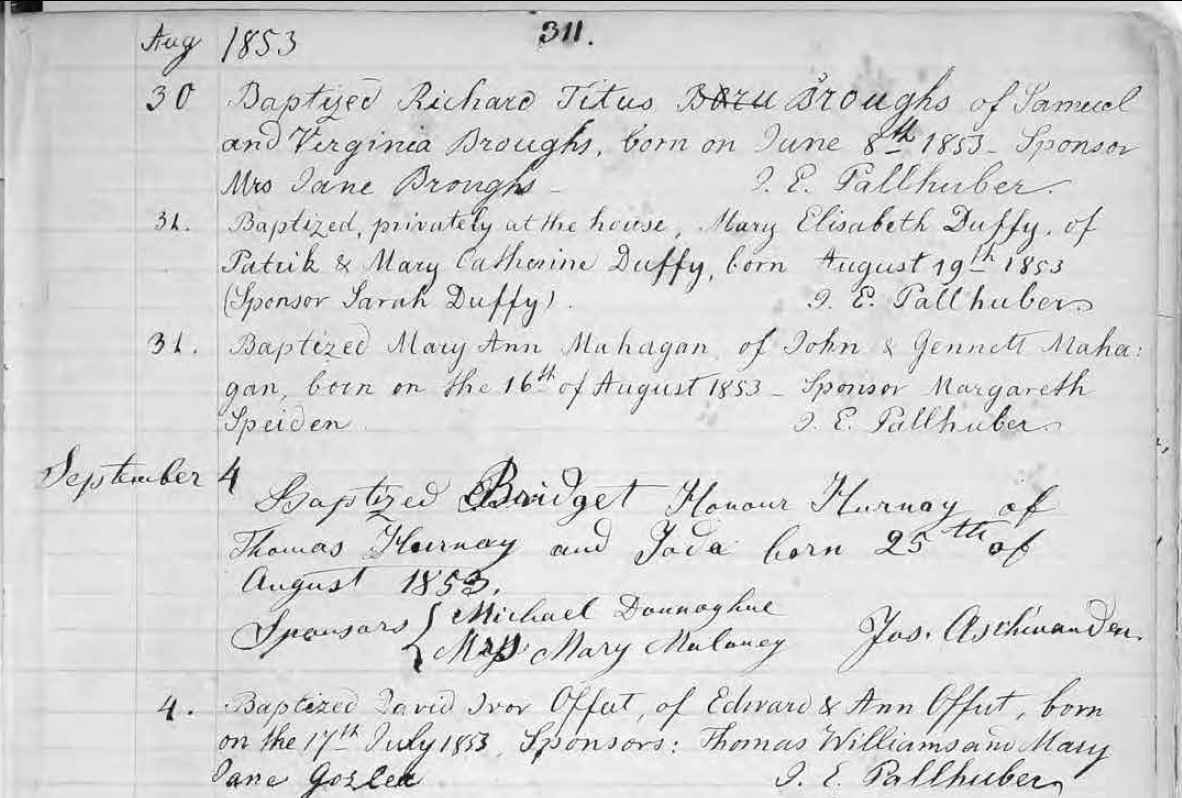 Aug 1853 311.
30 Baptized Richard Titus Broughs of Samuel
and Virginia Broughs, born on June 8th 1853 - Sponsor
Mrs Jane Broughs - J. E. Pallhuber.
31. Baptized, privately at the house, Mary Elisabeth Duffy, of
Patrik & Mary Catherine Duffy, born August 19th 1853
(Sponsor Sarah Duffy). J. E. Pallhuber
31. Baptized Mary Ann Mahagan of John & Gennett Maha:
gan, born on the 16th of August 1853 - Sponsor Margareth
Speiden J. E. Pallhuber
September 4
Baptized Bridget Honour of
Thomas and born 25th of
August 1853.
Sponsors { Michael Donnoghue
Mary Maloney Jos. Aschwanden.
4. Baptized David Ivor Offut, of Edward & Ann Offut, born
on the 17th July 1853. Sponsors: Thomas Williams and Mary
Jane Gozler J. E. Pallhuber